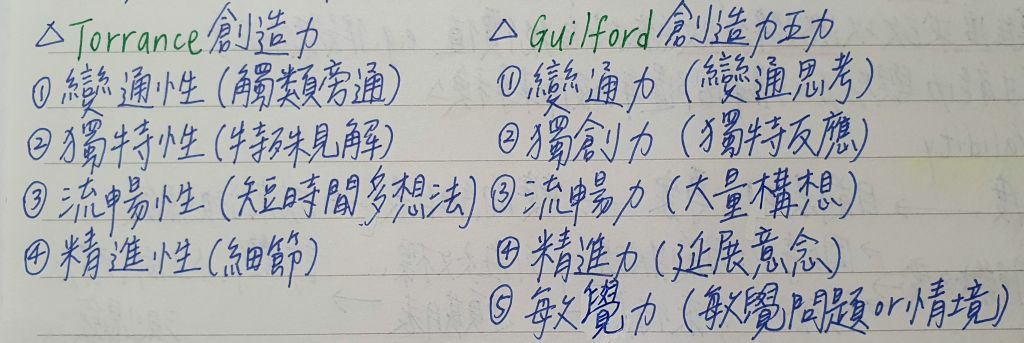 △ Torrance 創造力
① 變通性 (觸類旁通)
② 獨特性 (特殊見解)
③ 流暢性 (短時間多想法)
④ 精進性 (細節)
△ Guilford 創造力五力
① 變通力 (變通思考)
② 獨創力 (獨特反應)
③ 流暢力 (大量構想)
④ 精進力 (延展意念)
⑤ 敏覺力 (敏覺問題or情境)